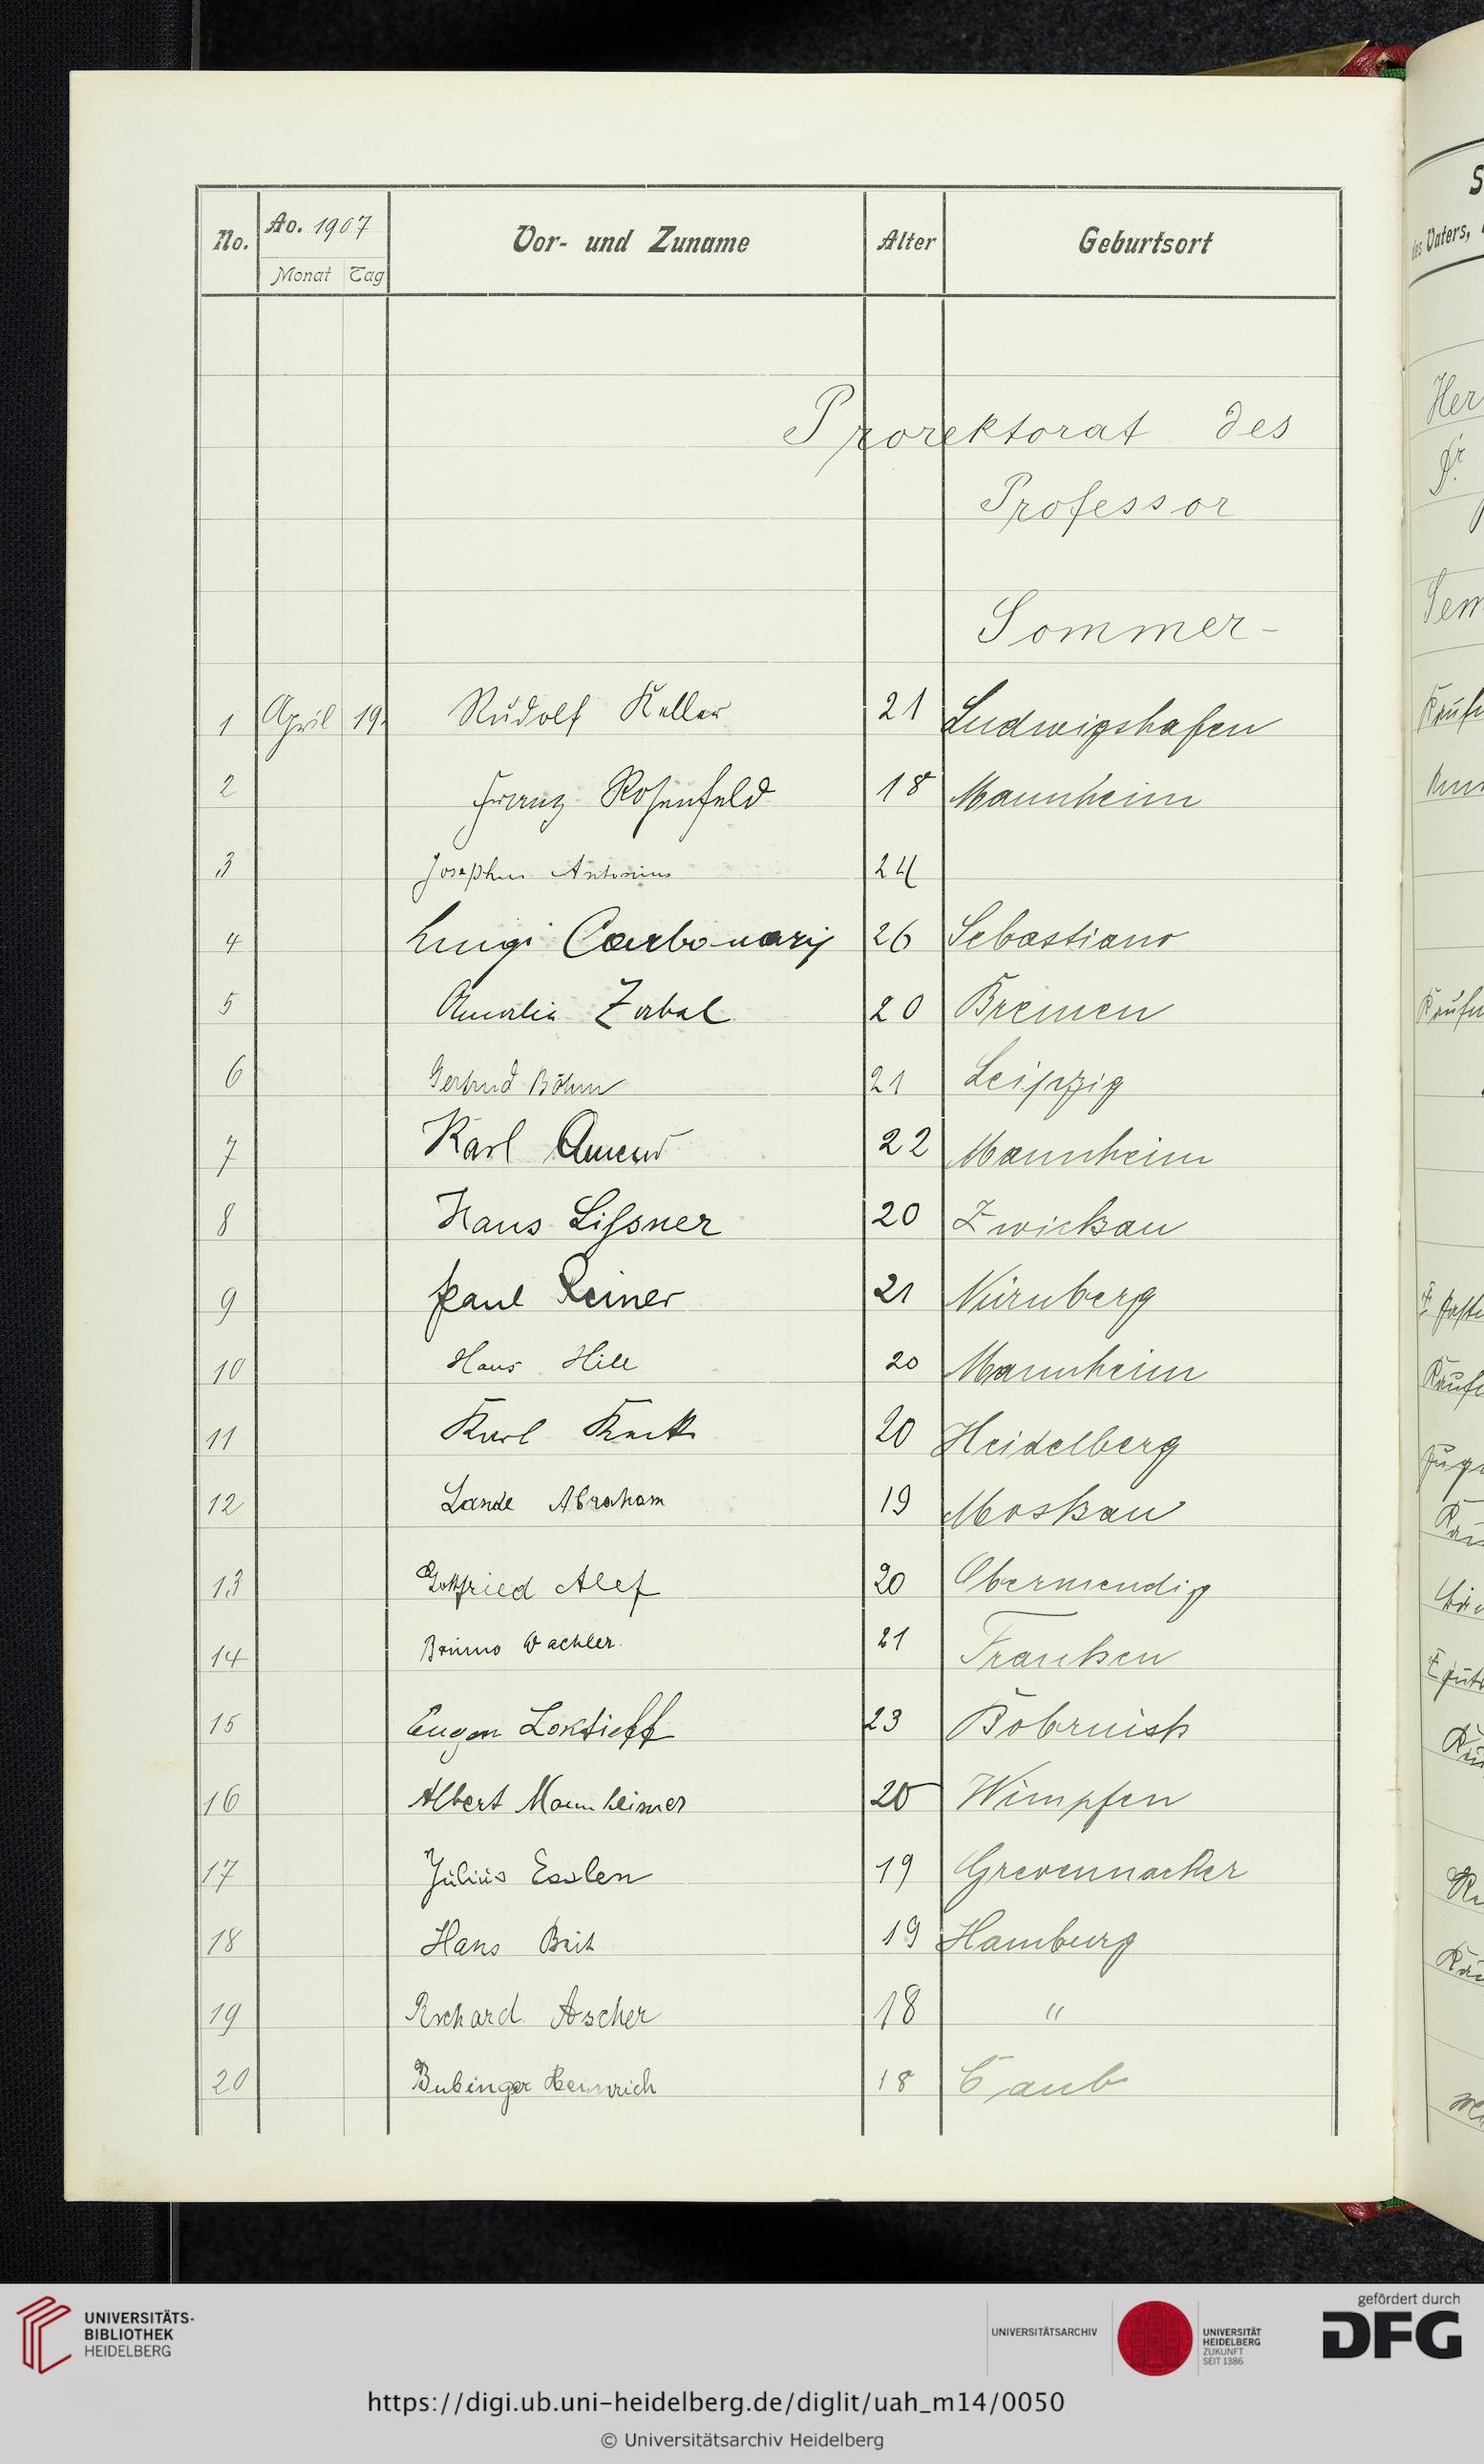 No. Ao. 1907 Vor- und Zuname Alter Geburtsort
Monat Tag
Prorektorat des
Professor
Sommer-
1 April 19. Rudolf Keller 21 Ludwigshafen
2 Franz Rosenfeld 18 Mannheim
3 Josephus Antonius 24
4 Luigi Carbonarij 26 Sebastiano
5 Amalia Zabal 20 Bremen
6 Gertrud Böhm 21 Leipzig
7 Karl Amend 22 Mannheim
8 Hans Lißner 20 Zwickau
9 Paul Reiner 21 Nürnberg
10 Hans Hill 20 Mannheim
11 Karl 20 Heidelberg
12 Lande Abraham 19 Moskau
13 Gottfried Alef 20 Obermendig
14 Bruno Wachler. 21 Franken
15 Eugen Loktieff 23 Bobruisk
16 Albert Mannheimer 20 Wimpfen
17 Julius Esslen 19 Grevenmacher
18 Hans 19 Hamburg
19 Richard Ascher 18 "
20 Bubinger Heinrich 18 Caub
S
des Vaters,
Her
UNIVERSITÄTS-
BIBLIOTHEK
HEIDELBERG
UNIVERSITÄTSARCHIV
UNIVERSITÄT
HEIDELBERG
ZUKUNFT
SEIT 1386
gefördert durch
DFG
https://digi.ub.uni-heidelberg.de/diglit/uah_m14/0050
© Universitätsarchiv Heidelberg